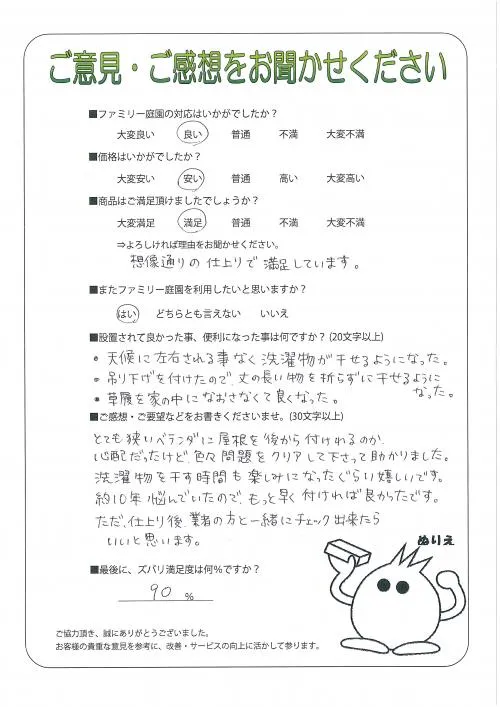 ご意見・ご感想をお聞かせください
■ファミリー庭園の対応はいかがでしたか？
大変良い 良い 普通 不満 大変不満
■価格はいかがでしたか？
大変安い 安い 普通 高い 大変高い
■商品はご満足頂けましたでしょうか？
大変満足 満足 普通 不満 大変不満
⇒よろしければ理由をお聞かせください。
想像通りの仕上りで満足しています。
■またファミリー庭園を利用したいと思いますか？
はい どちらとも言えない いいえ
■設置されて良かった事、便利になった事は何ですか？(20文字以上)
• 天候に左右される事なく洗濯物が干せるようになった。
• 吊り下げを付けたので、丈の長い物を折らずに干せるように
なった。
• 草履を家の中になおさなくて良くなった。
■ご感想・ご要望などをお書きくださいませ。(30文字以上)
とても狭いベランダに屋根を後から付けれるのか、
心配だったけど、色々問題をクリアして下さって助かりました。
洗濯物を干す時間も楽しみになったぐらい嬉しいです。
約10年悩んでいたので、もっと早く付ければ良かったです。
ただ、仕上り後、業者の方と一緒にチェック出来たら
いいと思います。
ぬりえ
■最後に、ズバリ満足度は何％ですか？
90 ％
ご協力頂き、誠にありがとうございました。
お客様の貴重な意見を参考に、改善・サービスの向上に活かして参ります。